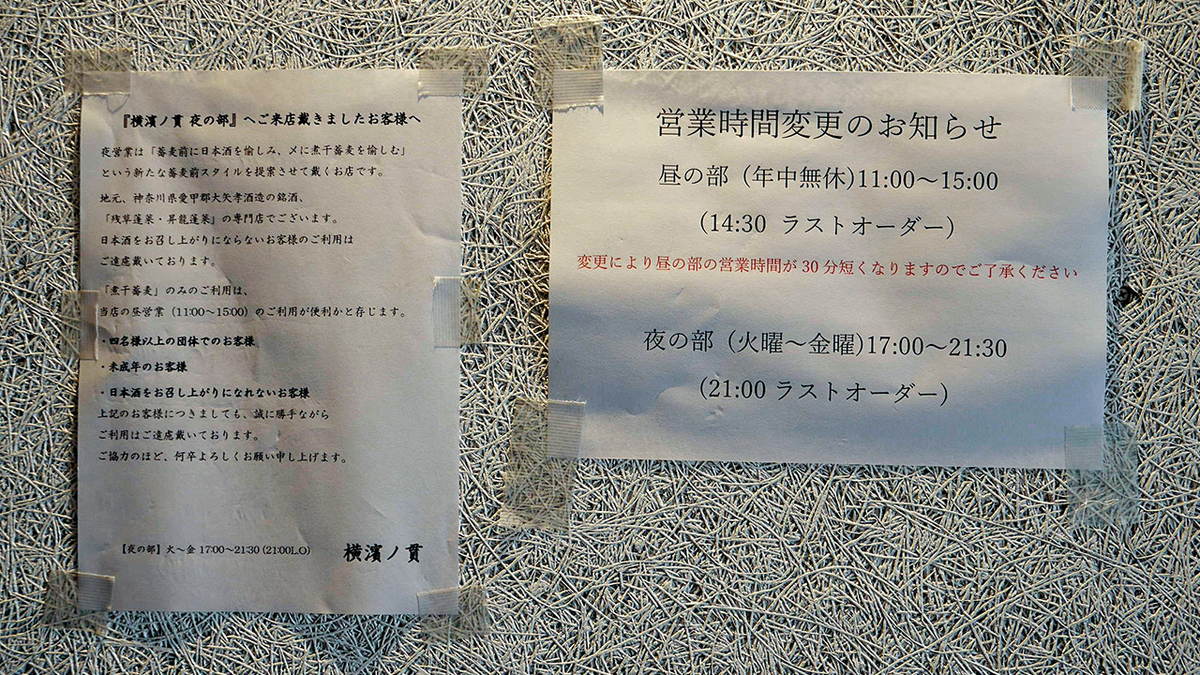 『横濱ノ貫 夜の部』へご来店戴きましたお客様へ
夜営業は「蕎麦前に日本酒を愉しみ、〆に煮干蕎麦を愉しむ」
という新たな蕎麦前スタイルを提案させて戴くお店です。
地元、神奈川県愛甲郡大矢孝酒造の銘酒、
「残草蓬莱・昇龍蓬莱』の専門店でございます。
日本酒をお召し上がりにならないお客様のご利用は
ご遠慮戴いております。
「煮干蕎麦」のみのご利用は、
当店の昼営業（11:00～15:00）のご利用が便利かと存じます。
・四名様以上の団体でのお客様
・未成年のお客様
・日本酒をお召し上がりになれないお客様
上記のお客様につきましても、誠に勝手ながら
ご利用はご遠慮戴いております。
ご協力のほど、何卒よろしくお願い申し上げます。
【夜の部】火～金 17:00～21:30 (21:00L.O)
横濱ノ貫
営業時間変更のお知らせ
昼の部（年中無休)11:00～15:00
(14:30 ラストオーダー)
変更により昼の部の営業時間が30分短くなりますのでご了承ください
夜の部（火曜～金曜)17:00～21:30
(21:00 ラストオーダー)